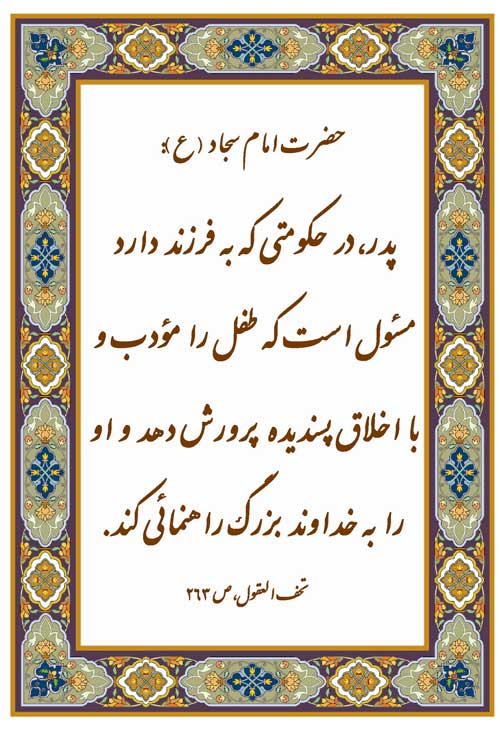 حضرت امام سجاد (ع):
پدر، در حکومتی که به فرزند دارد
مسئول است که طفل را مؤدب و
با اخلاق پسندیده پرورش دهد و او
را به خداوند بزرگ راهنمائی کند.
تحف العقول، ص ٢٦٣